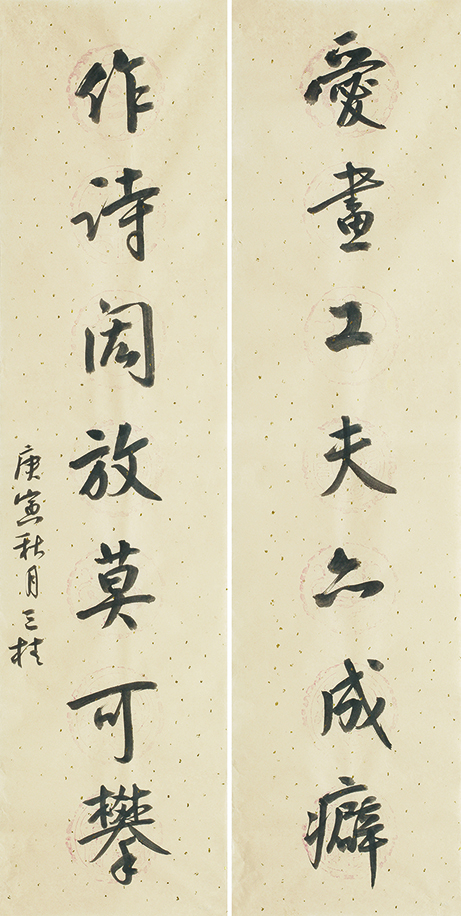 愛畫工夫亦成癖
作诗闳放莫可攀
庚寅秋月三桂